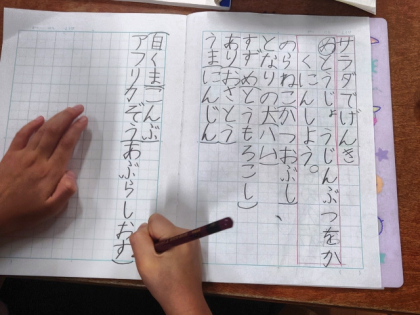 サラダでげんき
めとうじょうじんぶつをか
くにんしよう。
のらねこかつおぶし、
となりの犬ハム
すずめとうもろこし
ありおさとう
うまにんじん
白くまこんぶ
アフリカぞうあぶらしおす